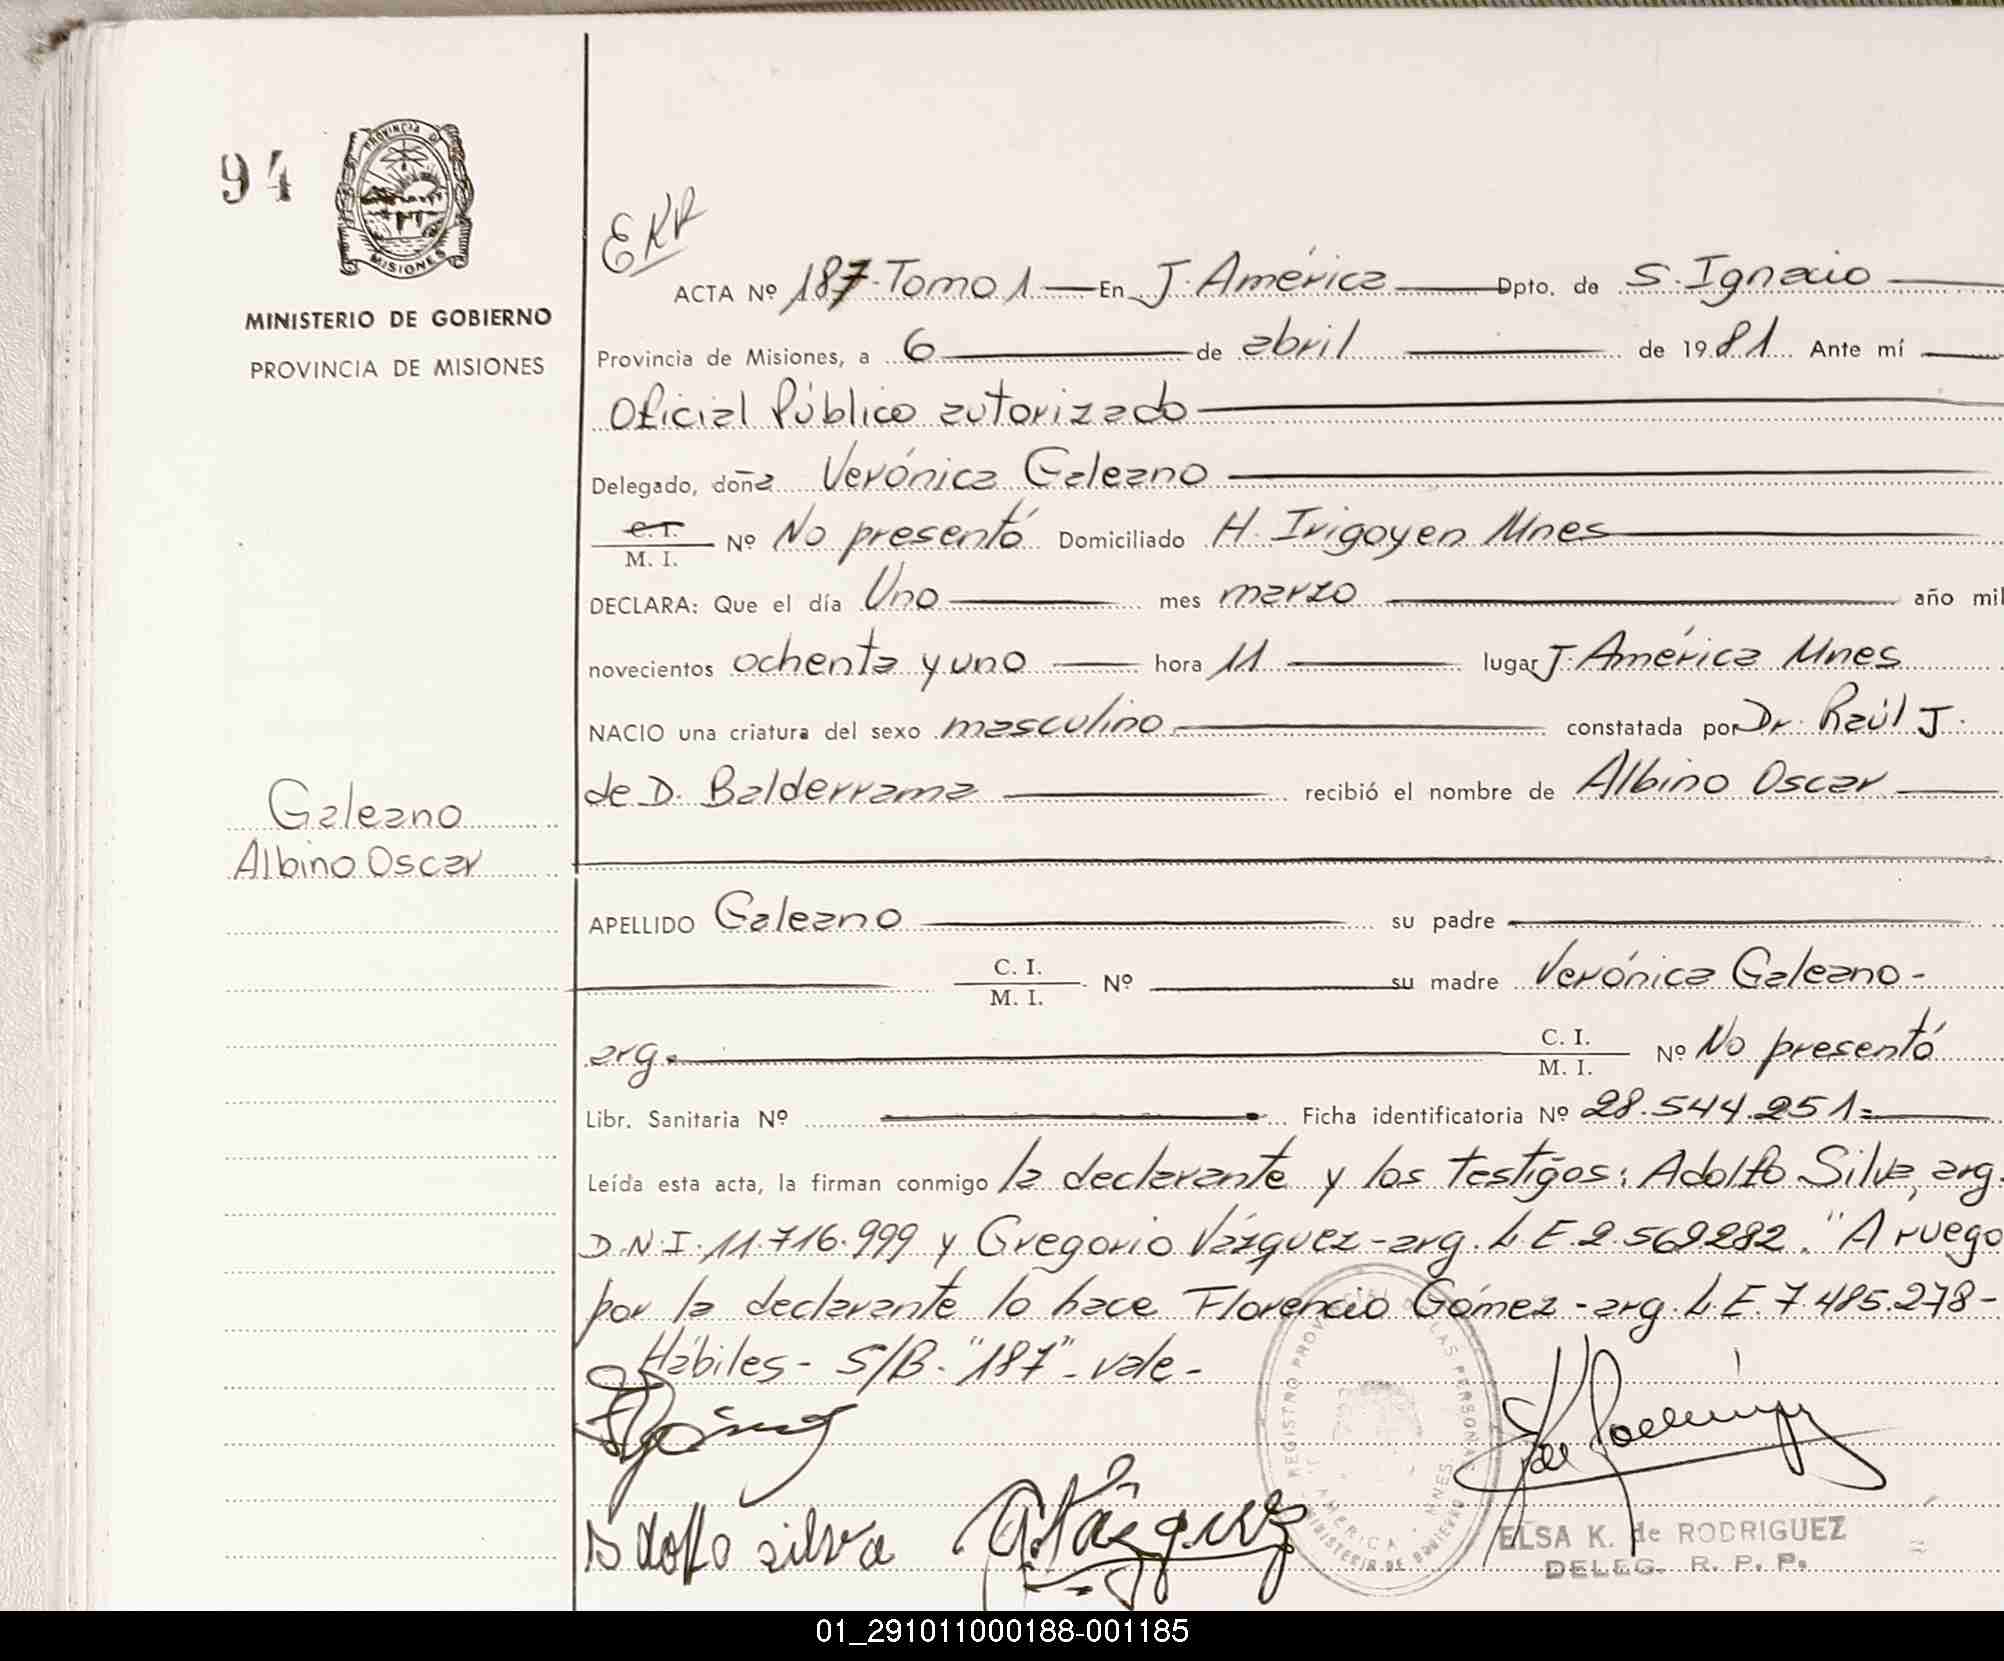 94
PROVINCIA DE
MISIONES
MINISTERIO DE GOBIERNO
PROVINCIA DE MISIONES
EKR
ACTA Nº 187-Tomo 1 En J. América Dpto. de S. Ignacio
Provincia de Misiones, a 6 de abril de 1981 Ante mí
Oficial Público autorizado
Delegado, doña Verónica Galeano
C.I. / M. I. Nº No presentó Domiciliado H. Irigoyen Mnes
DECLARA: Que el día Uno mes marzo año mil
novecientos ochenta y uno hora 11 lugar J. América Mnes
NACIO una criatura del sexo masculino constatada por Dr. Raúl J.
de D. Balderrama recibió el nombre de Albino Oscar
Galeano
Albino Oscar
APELLIDO Galeano su padre
C. I. / M. I. Nº su madre Verónica Galeano -
arg. C. I. / M. I. Nº No presentó
Libr. Sanitaria Nº Ficha identificatoria Nº 28.544.251=
Leída esta acta, la firman conmigo la declarante y los testigos: Adolfo Silva, arg.
D.N.I. 11.716.999 y Gregorio Vázquez - arg. L.E. 2.569.282. "A ruego
por la declarante lo hace Florencio Gómez - arg. L.E. 7.485.278 -
Hábiles - S/B. "187" - vale -
FGómez
Adolfo silva
G. Vázquez
K de Rodriguez
REGISTRO PROVINCIAL DE LAS PERSONAS
AMERICA - MNES.
MINISTERIO DE GOBIERNO
ELSA K. de RODRIGUEZ
DELEG. R. P. P.
01_291011000188-001185